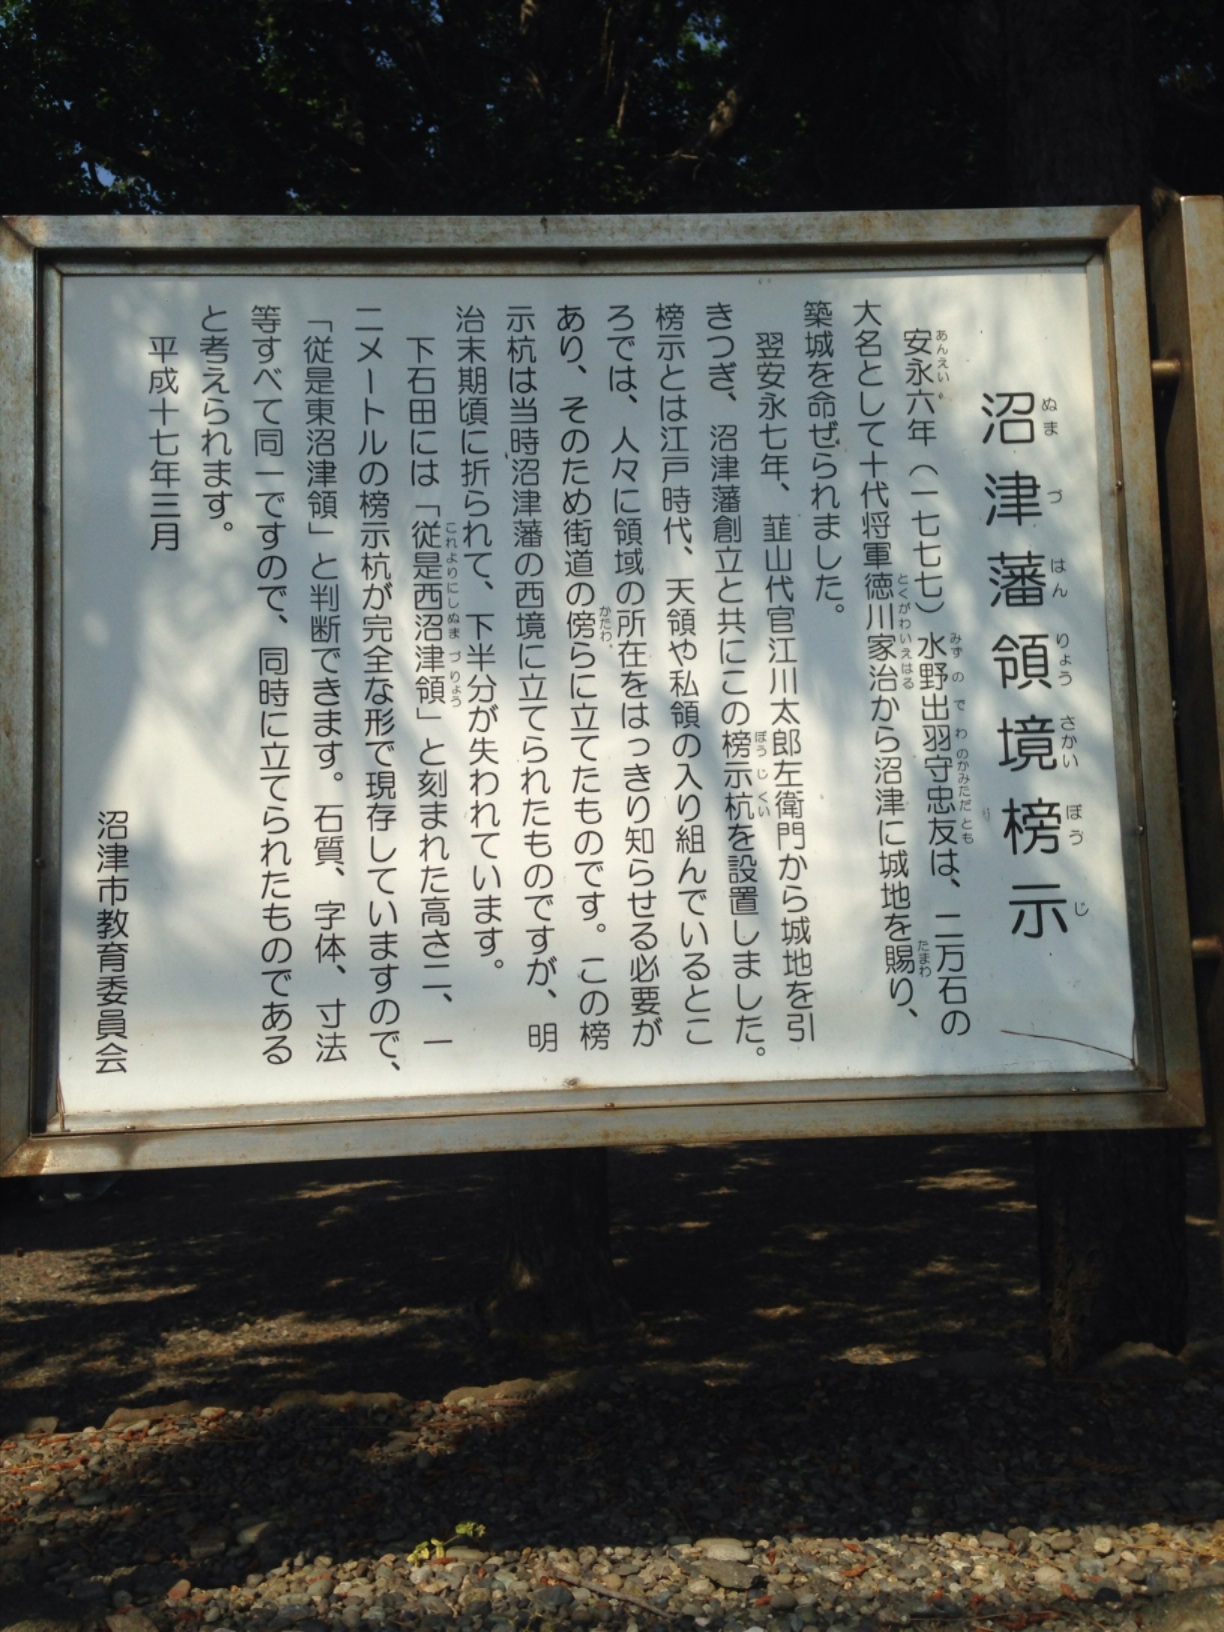 沼津藩領境榜示
安永六年（一七七七）水野出羽守忠友は、二万石の
大名として十代将軍徳川家治から沼津に城地を賜り、
築城を命ぜられました。
翌安永七年、韮山代官江川太郎左衛門から城地を引
きつぎ、沼津藩創立と共にこの榜示杭を設置しました。
榜示とは江戸時代、天領や私領の入り組んでいるとこ
ろでは、人々に領域の所在をはっきり知らせる必要が
あり、そのため街道の傍らに立てたものです。この榜
示杭は当時沼津藩の西境に立てられたものですが、明
治末期頃に折られて、下半分が失われています。
下石田には「従是西沼津領」と刻まれた高さ二、一
二メートルの榜示杭が完全な形で現存していますので、
「従是東沼津領」と判断できます。石質、字体、寸法
等すべて同一ですので、同時に立てられたものである
と考えられます。
平成十七年三月
沼津市教育委員会